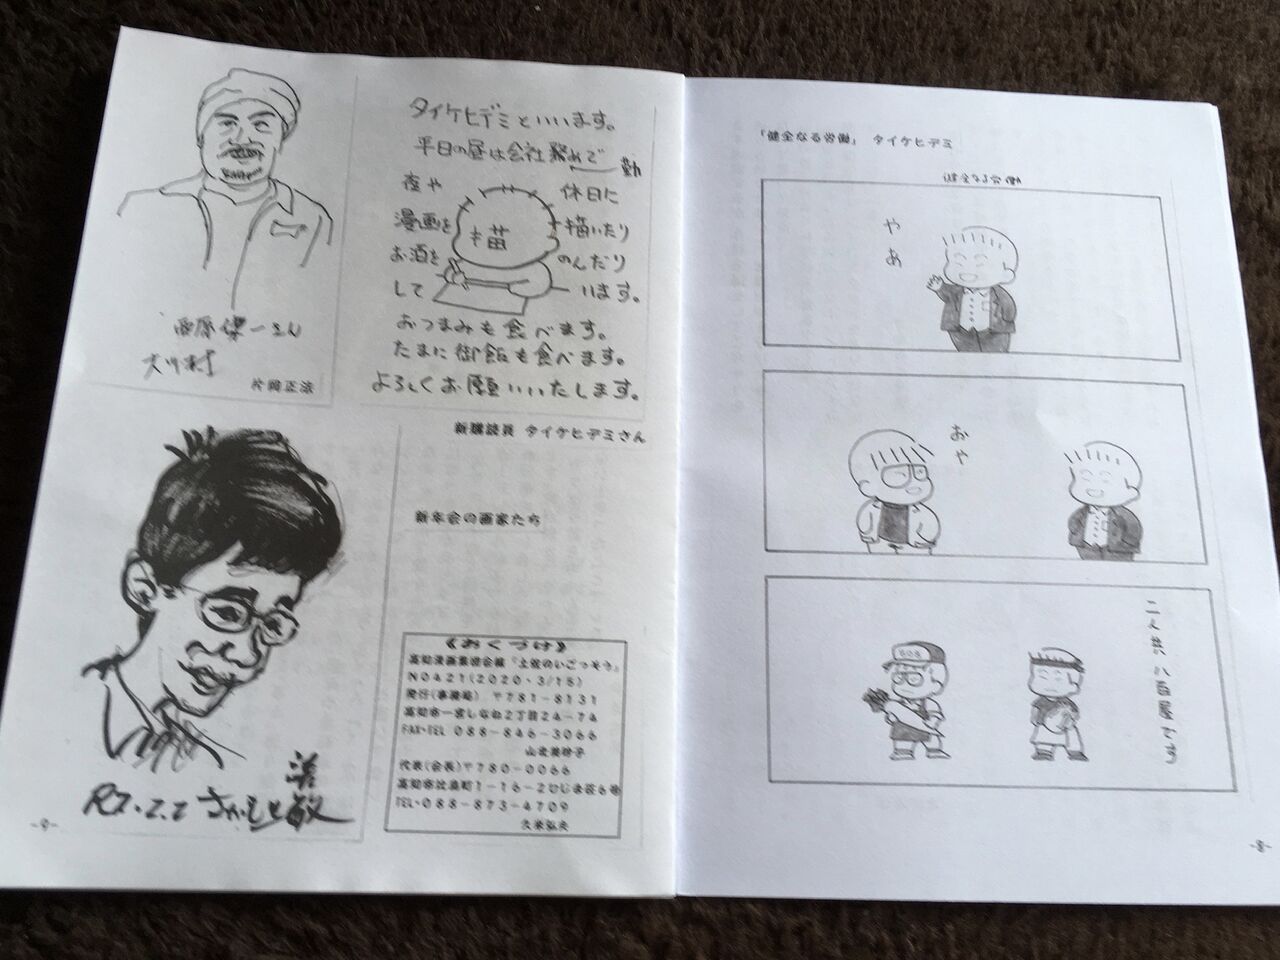 「健全なる労働」 タイケヒデミ
健全なる労働
やあ
おや
二人共八百屋です
-8-
タイケヒデミといいます。
平日の昼は会社務めで 勤
夜や 休日に
漫画を 描いたり
お酒を のんだり
して います。
描
おつまみも食べます。
たまに御飯も食べます。
よろしくお願いいたします。
新購読員 タイケヒデミさん
さん
大川村
片岡正法
新年会の画家たち
R2.2.2
《おくづけ》
高知漫画集団会報『土佐のいごっそう』
NO421(2020・3/15)
発行(事務局) 〒781-8131
高知市一宮しなね2丁目24-74
FAX・TEL 088-846-3066
代表(会長)〒780-0066
高知市比島町1-16-2ひじま荘6号
TEL・088-873-4709
-9-